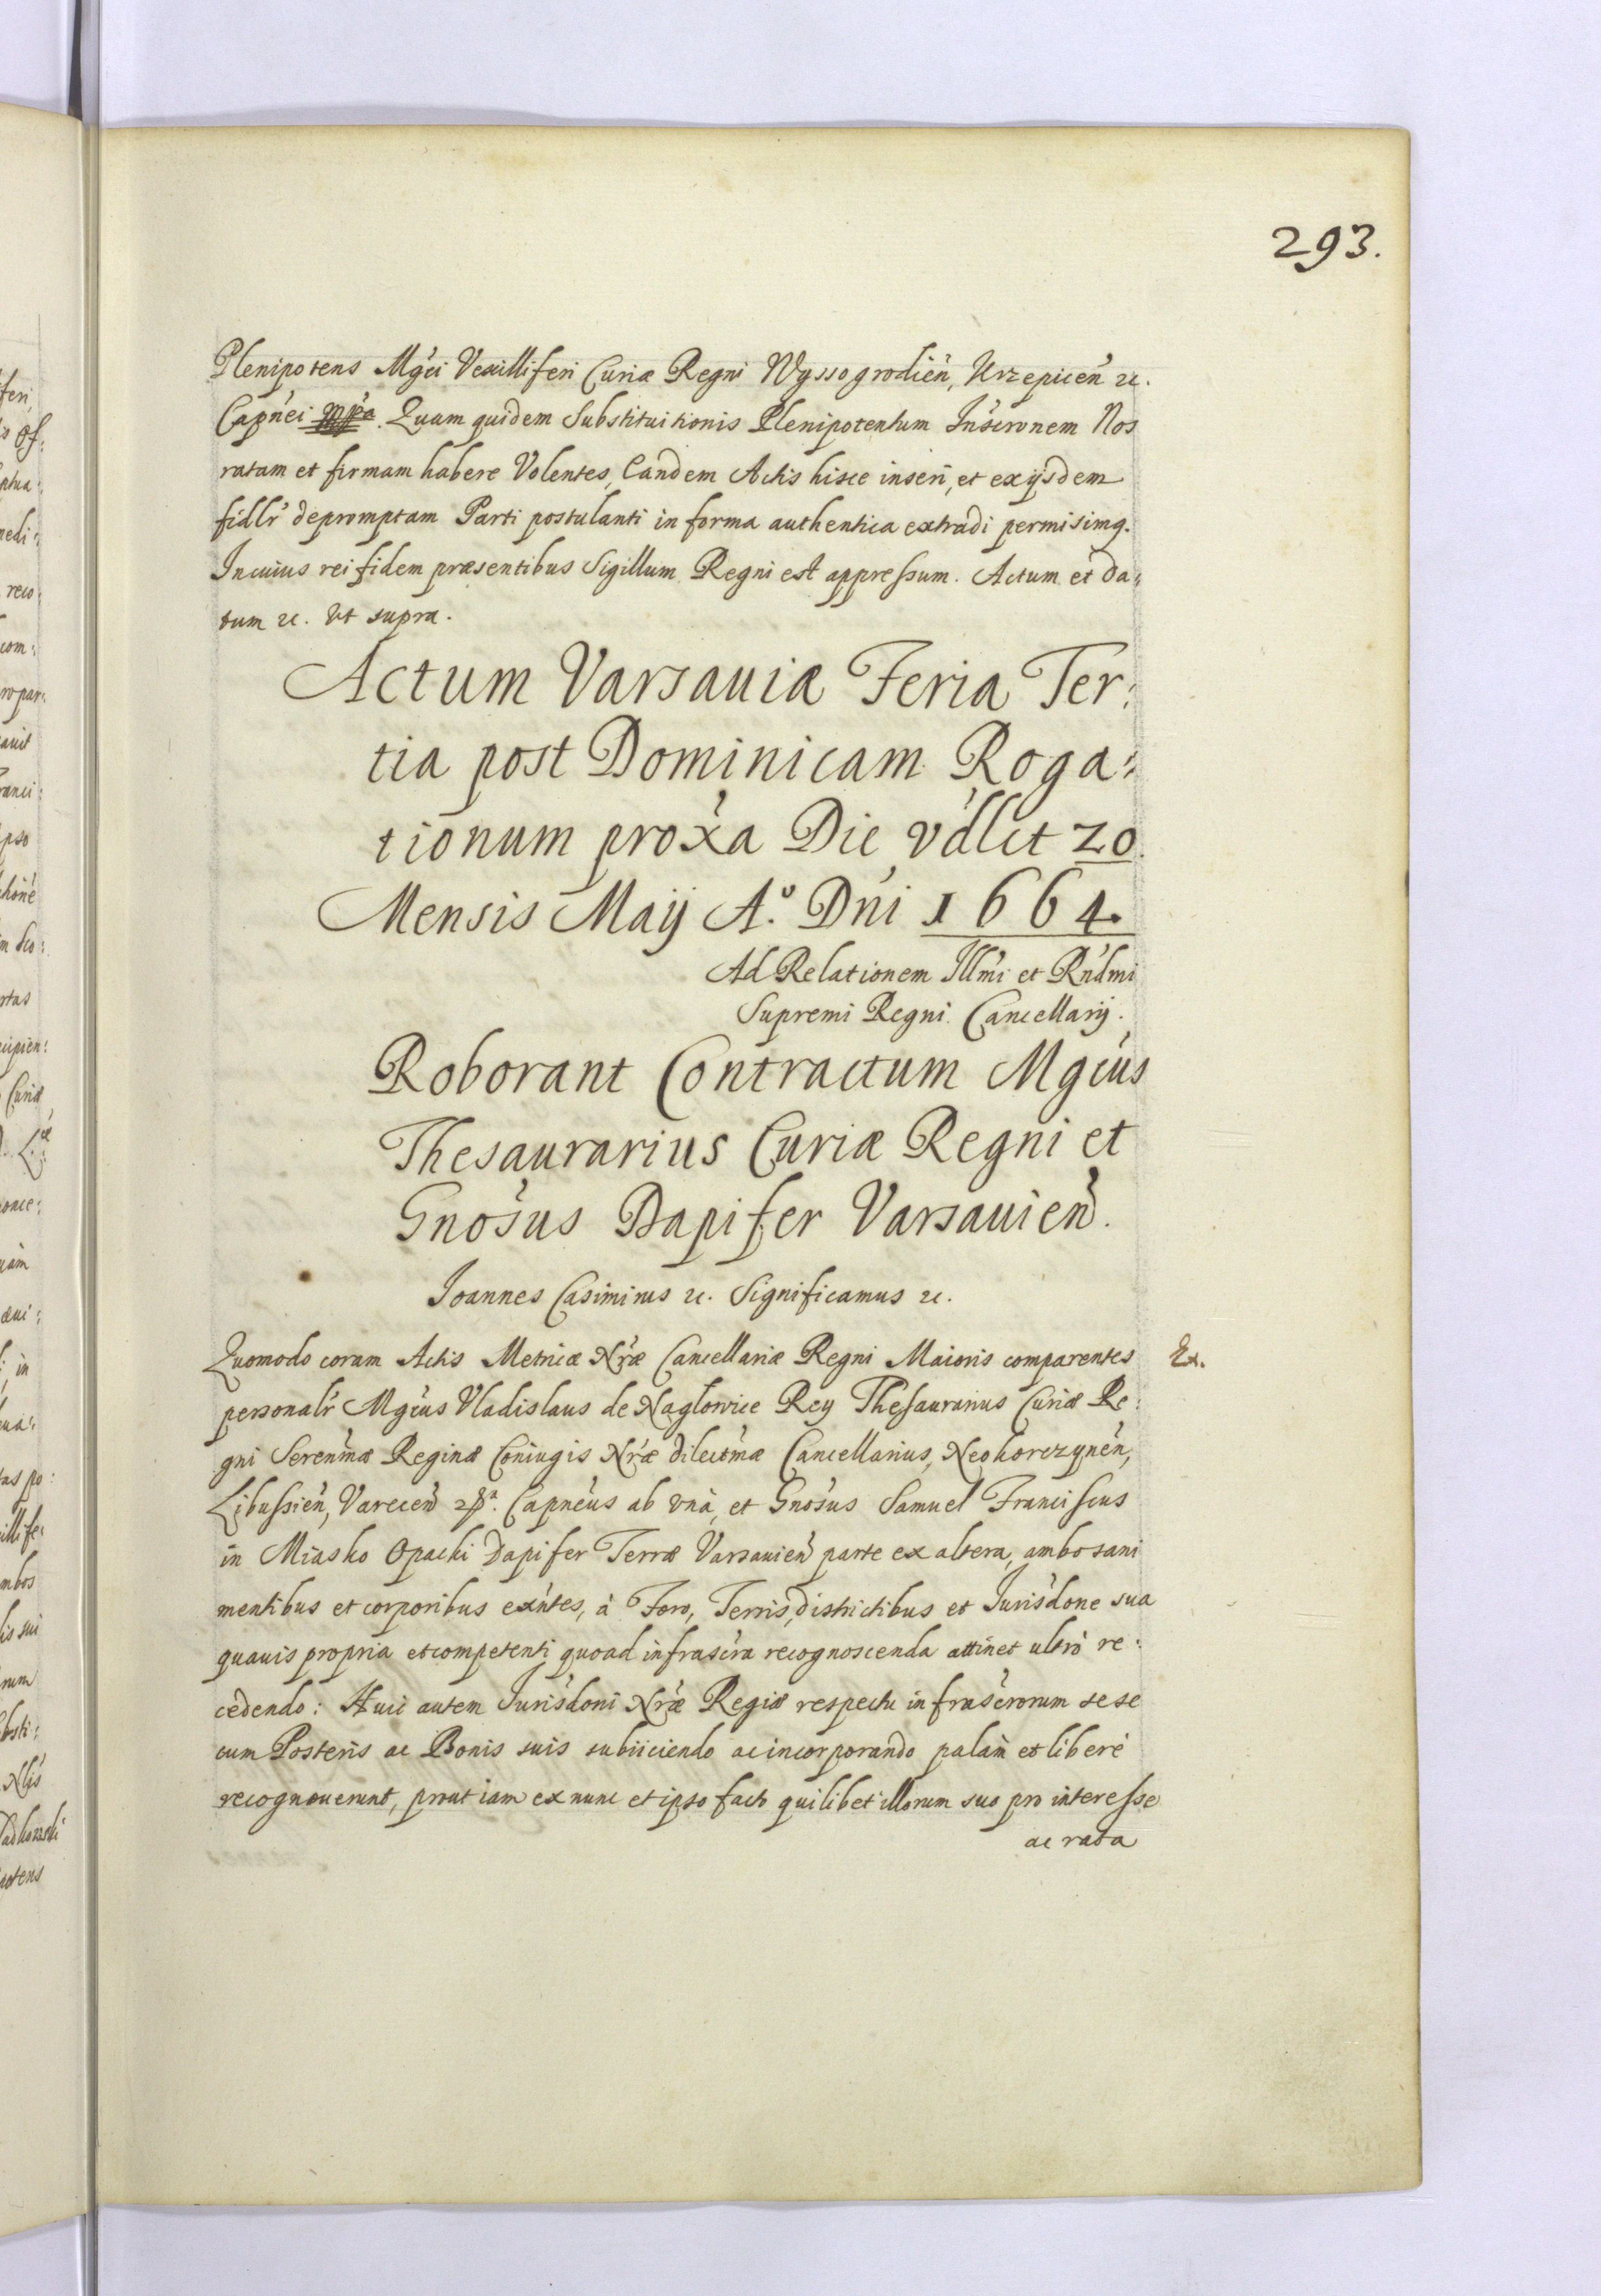 293.
Plenipotens Mgći Vexilliferi Curiæ Regni Wyssogrodień, Krzepiceń ꝛc.
Capn̄ei mp̄a. Quam quidem Substituitionis Plenipotentum Inscr̄onem Nos
ratam et firmam habere Volentes, Eandem Actis hisce inseri, et ex ijsdem
fidlr̄ depromptam Parti postulanti in forma authentica extradi permisimq.
In cuius rei fidem præsentibus Sigillum Regni est appressum. Actum et da:
tum ꝛc. Vt supra.
Actum Varsauiæ Feria Ter:
tia post Dominicam Roga:
tionum prox̄a Die vd̄lct 20.
Mensis Maij A.º Dn̄i 1664.
Ad Relationem Illm̄i et Rn̄dmi
Supremi Regni Cancellarij.
Roborant Contractum Mgc̄us
Thesaurarius Curiæ Regni et
Gnos̄us Dapifer Varsauień.
Joannes Casimirus ꝛc. Significamus ꝛc.
Quomodo coram Actis Metricæ Nr̄æ Cancellariæ Regni Maioris comparentes
Ex.
personalr̄ Mgc̄us Vladislaus de Naglowice Rey Thesaurarius Curiæ Re:
gni Serenm̄æ Reginæ Coniugis Nr̄æ dilectm̄æ Cancellarius, Neokorczyneń,
Libussień, Vareceń Capn̄eus ab vnà, et Gnos̄us Samuel Franciscus
in Miasko Opacki Dapifer Terræ Varsauień parte ex altera, ambo sani
mentibus et corporibus exn̄tes, à Foro, Terris, districtibus et Jurisd̄one sua
quauis propria et competenti quoad infrascr̄a recognoscenda attinet ultrò re:
cedendo: Huic autem Jurisd̄oni Nr̄æ Regiæ respectu infrascr̄orum sese
cum Posteris ac Bonis suis subiiciendo ac incorporando palàm et liberè
recognouerunt, prout iam ex nunc et ipso facto quilibet illorum suo pro interesse
ac rata